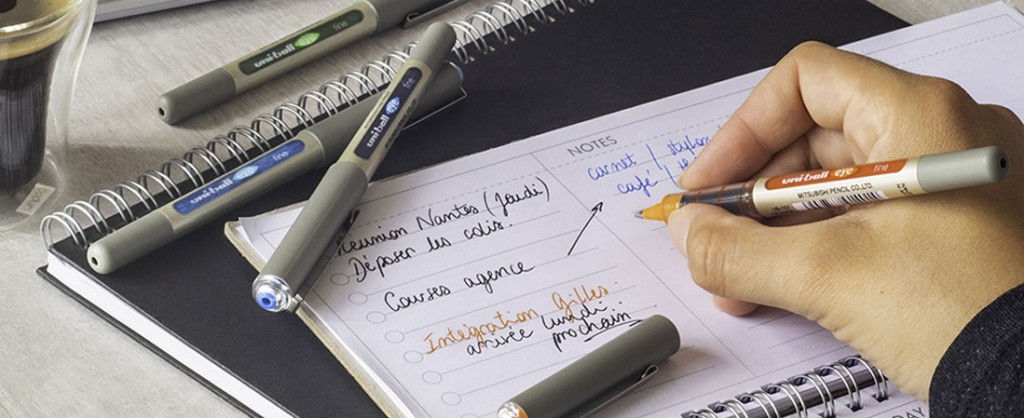 uni-ball eye fine
uni-ball eye fine
uni-ball eye
NOTES
carnet / stylos
café /
Réunion Nantes (Jeudi)
Déposer les colis.
Courses agence
Intégration Gilles.
arrivée lundi
prochain
uni-ball eye fine
MITSUBISHI PENCIL CO., LTD